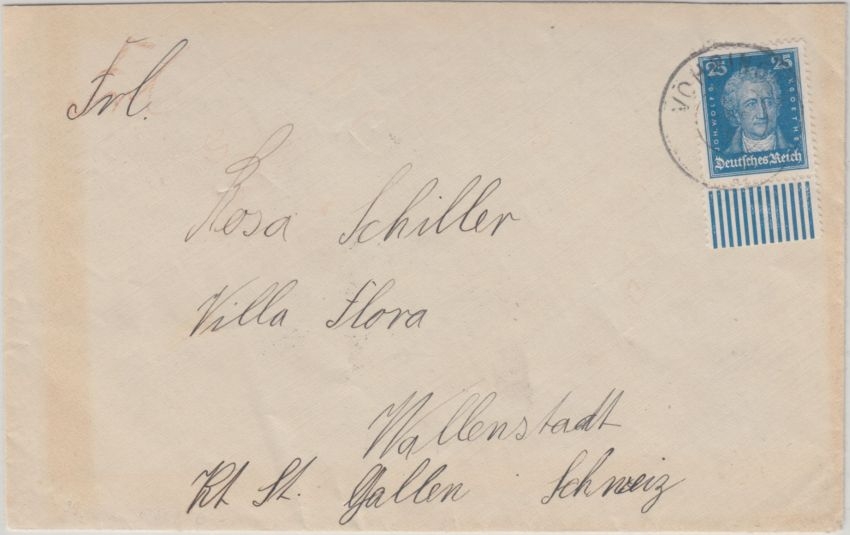 Frl.
Rosa Schiller
Villa Flora
Wallenstadt
Kt St. Gallen Schweiz
25 25
JOH. WOLFG. V. GOETHE
Deutsches Reich